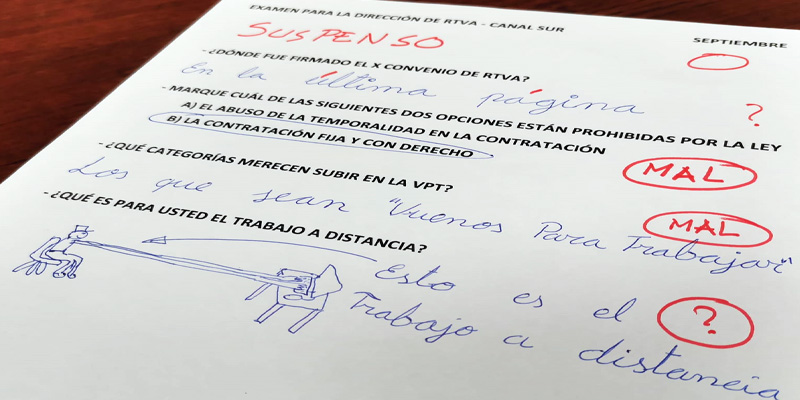 EXAMEN PARA LA DIRECCIÓN DE RTVA - CANAL SUR
SEPTIEMBRE
SUSPENSO
- ¿DÓNDE FUE FIRMADO EL X CONVENIO DE RTVA?
En la última página
?
- MARQUE CUÁL DE LAS SIGUIENTES DOS OPCIONES ESTÁN PROHIBIDAS POR LA LEY
A) EL ABUSO DE LA TEMPORALIDAD EN LA CONTRATACIÓN
B) LA CONTRATACIÓN FIJA Y CON DERECHO
MAL
- ¿QUÉ CATEGORÍAS MERECEN SUBIR EN LA VPT?
MAL
Los que sean "Vuenos Para Trabajar"
- ¿QUÉ ES PARA USTED EL TRABAJO A DISTANCIA?
Esto es el
?
Trabajo a distancia